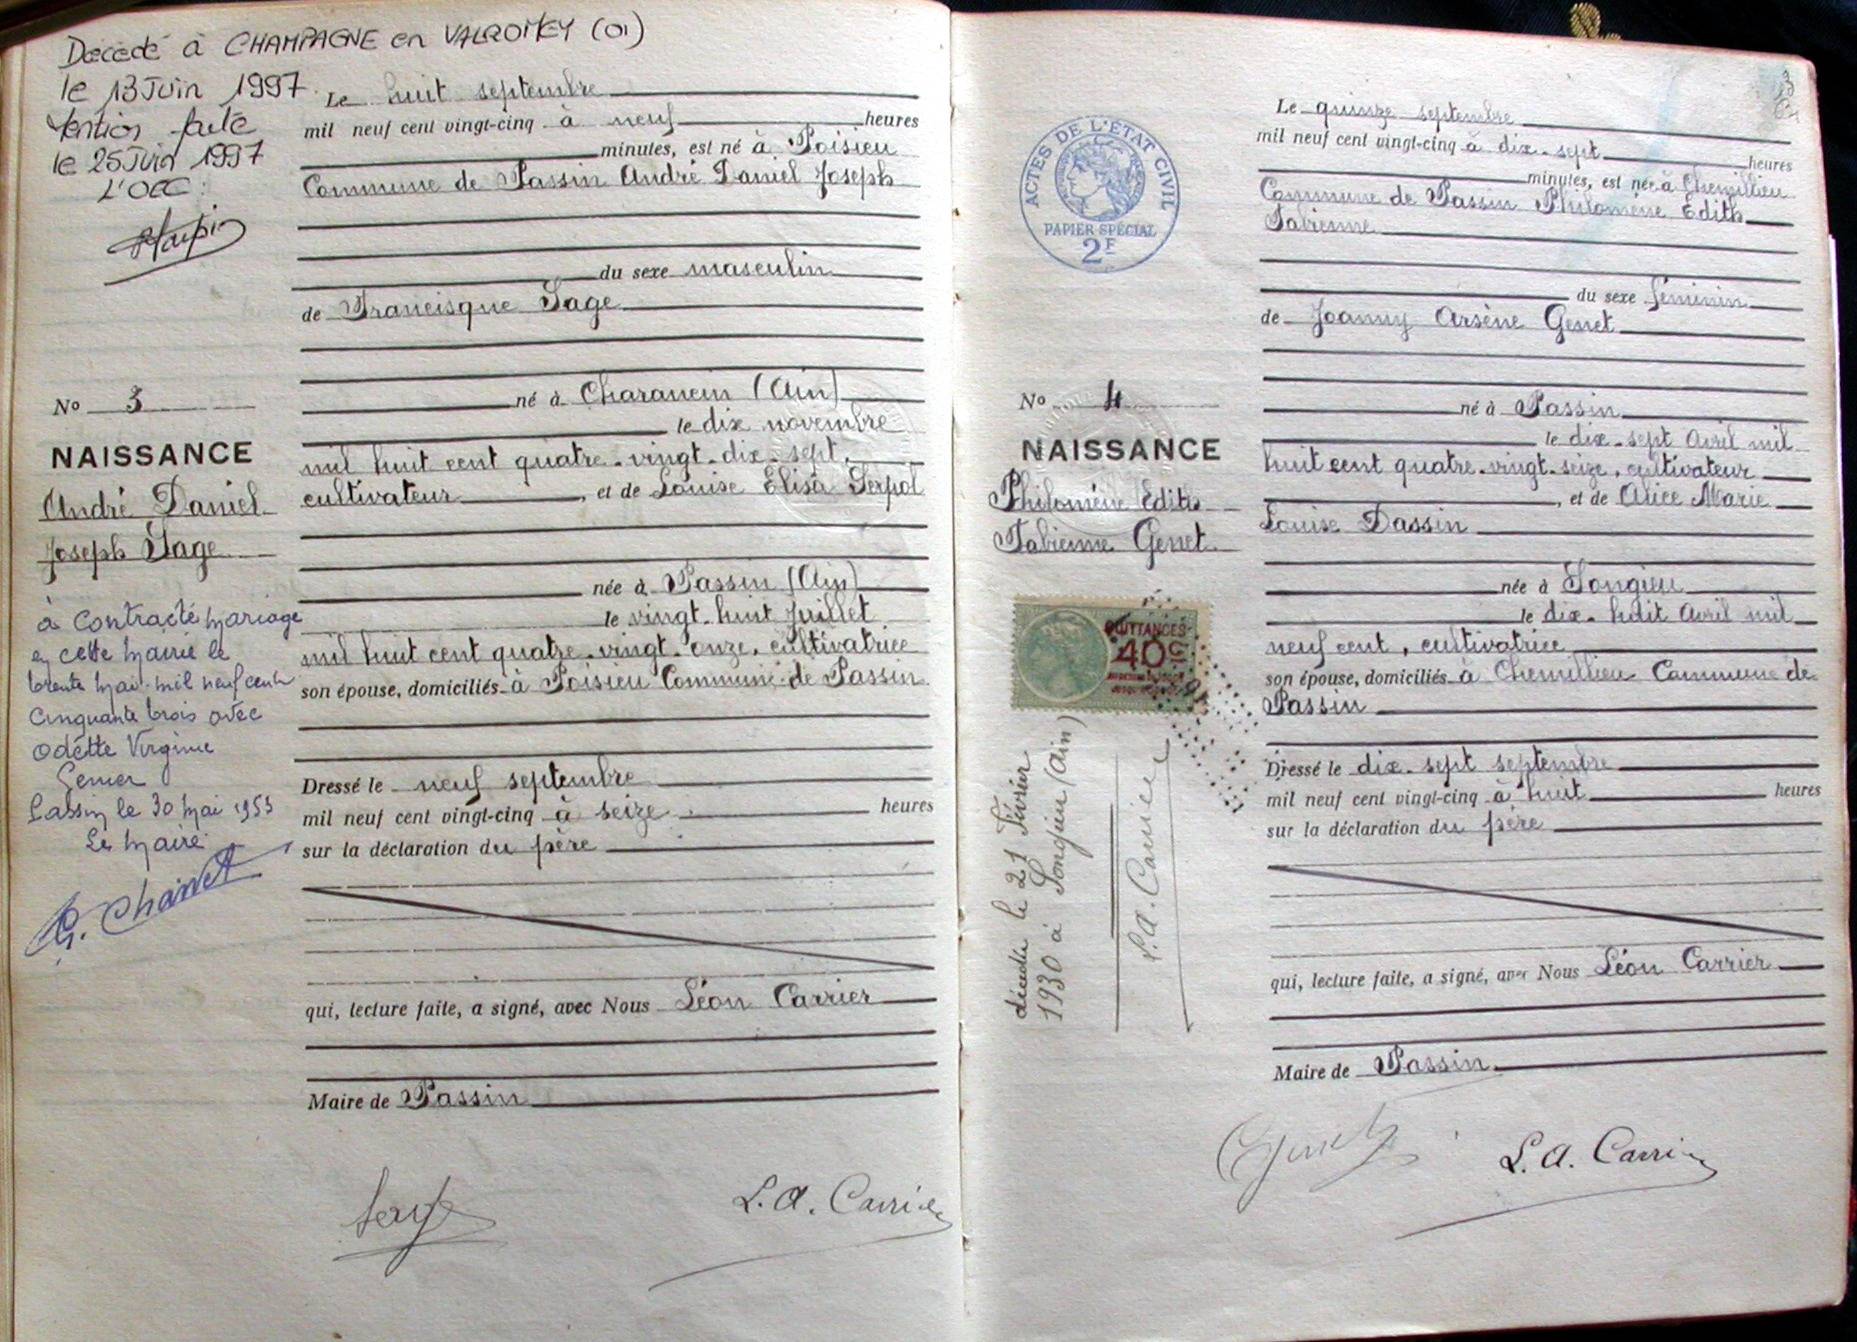 Décédé à CHAMPAGNE en VALROMEY (01)
le 13 Juin 1997
Mention faite
le 25 Juin 1997
L'OEC :
Le huit septembre
mil neuf cent vingt-cinq à neuf heures
minutes, est né à Poisieu
Commune de Passin André Daniel Joseph
du sexe masculin
de Francisque Sage
né à Charancin (Ain)
le dix novembre
mil huit cent quatre-vingt-dix-sept,
cultivateur, et de Louise Elisa Serpol
née à Passin (Ain)
le vingt-huit Juillet
mil huit cent quatre-vingt-onze, cultivatrice
son épouse, domiciliés à Poisieu Commune de Passin
Dressé le neuf septembre
mil neuf cent vingt-cinq à seize heures
sur la déclaration du père
qui, lecture faite, a signé, avec Nous Léon Carrier
Maire de Passin
Sage
L. A. Carrier
No 3
NAISSANCE
André Daniel
Joseph Sage
à contracté mariage
en cette mairie le
trente mai mil neuf cent
cinquante trois avec
Odette Virginie
Passin le 30 mai 1953
Le Maire
ACTES DE L'ÉTAT CIVIL
PAPIER SPÉCIAL
2F
No 4
NAISSANCE
Philomène Edith
Fabienne Genet
QUITTANCES
40c
décédée le 21 Février
1930 à Songieu (Ain)
L. A. Carrier
Le quinze septembre
mil neuf cent vingt-cinq à dix-sept heures
minutes, est née à Chemillieu
Commune de Passin Philomène Edith
Fabienne
du sexe féminin
de Joanny Arsène Genet
né à Passin
le dix-sept Avril mil
huit cent quatre-vingt-seize, cultivateur
, et de Alice Marie
Louise Dassin
née à Songieu
le dix-huit Avril mil
neuf cent, cultivatrice
son épouse, domiciliés à Chemillieu Commune de
Passin
Dressé le dix-sept septembre
mil neuf cent vingt-cinq à huit heures
sur la déclaration du père
qui, lecture faite, a signé, avec Nous Léon Carrier
Maire de Passin
Genet
L. A. Carrier